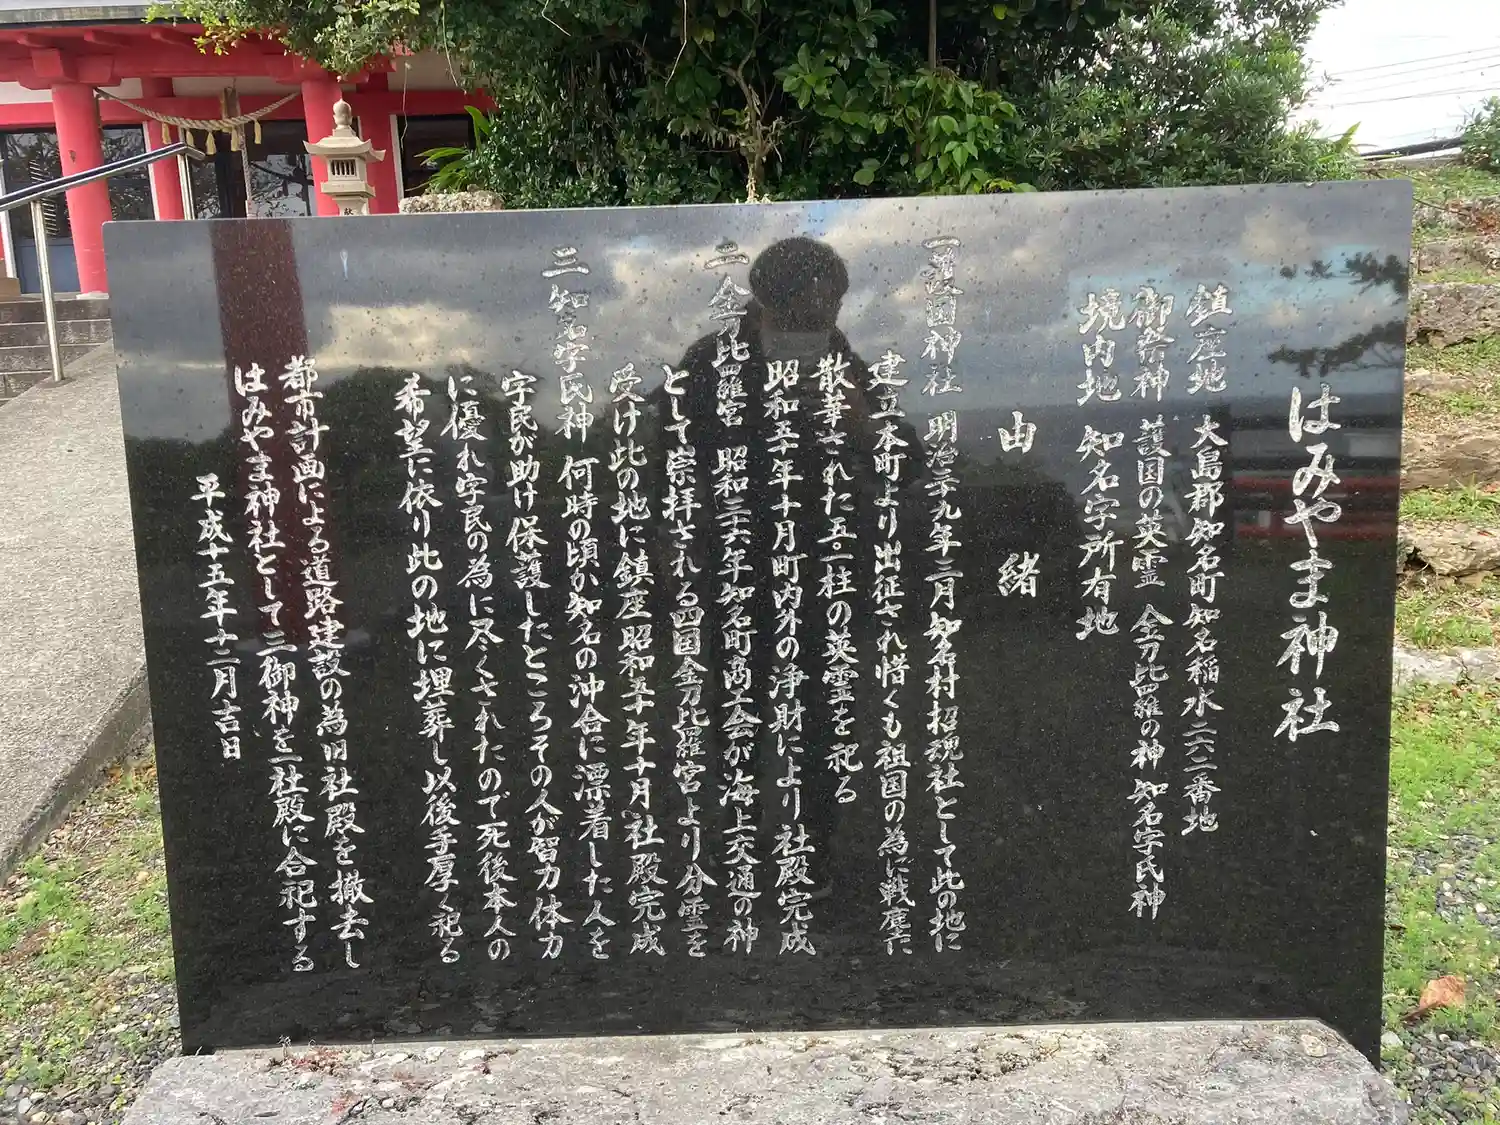 はみやま神社
鎮座地 大島郡知名町知名稲水二六二番地
御祭神 護国の英霊 金刀比羅の神 知名字民神
境内地 知名字所有地
由緒
一 護国神社 明治三十九年三月知名村招魂社として此の地に
建立本町より出征され惜くも祖国の為に戦塵に
散華された五〇一柱の英霊を祀る
昭和五十年十月町内外の浄財により社殿完成
二 金刀比羅宮 昭和三十六年知名町商工会が海上交通の神
として崇拝される四国金刀比羅宮より分霊を
受け此の地に鎮座昭和五十年十月社殿完成
三 知名字民神 何時の頃か知名の沖合に漂着した人を
字民が助け保護したところその人が智力体力
に優れ字民の為に尽くされたので死後本人の
希望に依り此の地に埋葬し以後手厚く祀る
都市計画による道路建設の為旧社殿を撤去し
はみやま神社として三御神を一社殿に合祀する
平成十五年十二月吉日